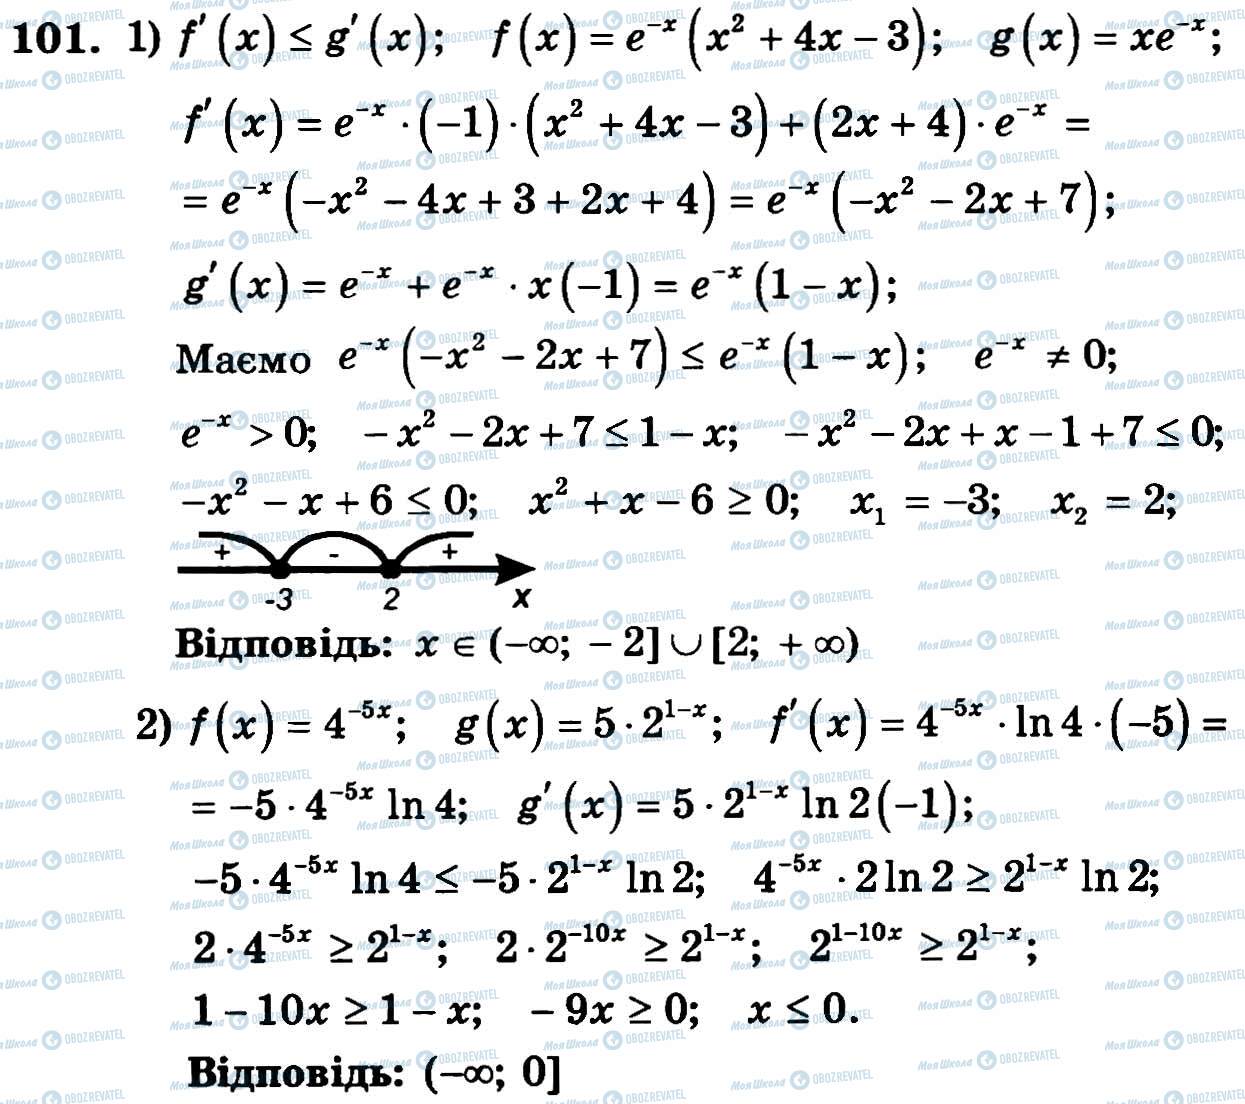 101. 1) f′(x) ≤ g′(x); f(x) = e⁻ˣ(x² + 4x − 3); g(x) = xe⁻ˣ;
f′(x) = e⁻ˣ · (−1) · (x² + 4x − 3) + (2x + 4) · e⁻ˣ =
= e⁻ˣ(−x² − 4x + 3 + 2x + 4) = e⁻ˣ(−x² − 2x + 7);
g′(x) = e⁻ˣ + e⁻ˣ · x(−1) = e⁻ˣ(1 − x);
Маємо e⁻ˣ(−x² − 2x + 7) ≤ e⁻ˣ(1 − x); e⁻ˣ ≠ 0;
e⁻ˣ > 0; −x² − 2x + 7 ≤ 1 − x; −x² − 2x + x − 1 + 7 ≤ 0;
−x² − x + 6 ≤ 0; x² + x − 6 ≥ 0; x₁ = −3; x₂ = 2;
+ - +
-3 2 x
Відповідь: x ∈ (−∞; −2] ∪ [2; +∞)
2) f(x) = 4⁻⁵ˣ; g(x) = 5 · 2¹⁻ˣ; f′(x) = 4⁻⁵ˣ · ln 4 · (−5) =
= −5 · 4⁻⁵ˣ ln 4; g′(x) = 5 · 2¹⁻ˣ ln 2(−1);
−5 · 4⁻⁵ˣ ln 4 ≤ −5 · 2¹⁻ˣ ln 2; 4⁻⁵ˣ · 2 ln 2 ≥ 2¹⁻ˣ ln 2;
2 · 4⁻⁵ˣ ≥ 2¹⁻ˣ; 2 · 2⁻¹⁰ˣ ≥ 2¹⁻ˣ; 2¹⁻¹⁰ˣ ≥ 2¹⁻ˣ;
1 − 10x ≥ 1 − x; −9x ≥ 0; x ≤ 0.
Відповідь: (−∞; 0]
МояШкола OBOZREVATEL